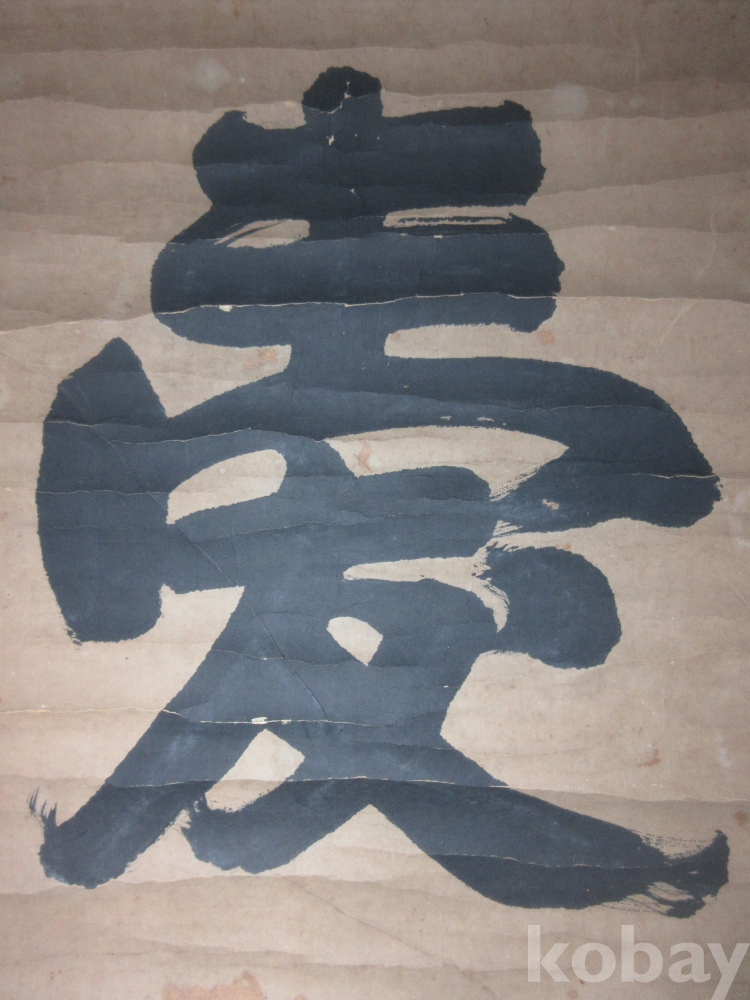 憂
kobay